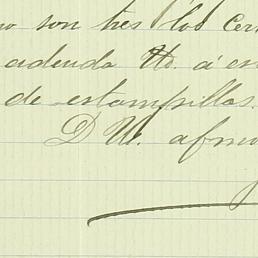 son tres los cer
adeuda Ud. á
de estampillas.
D Ud. afmo